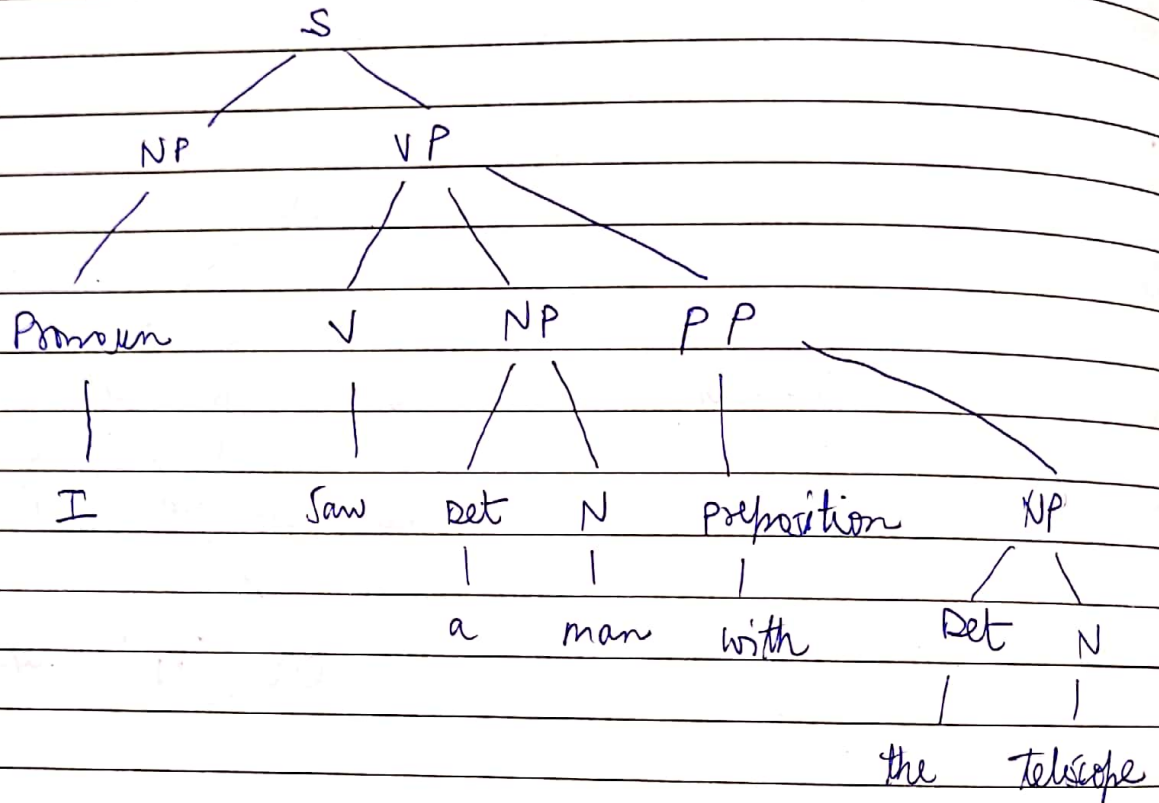 S
NP VP
Pronoun V NP PP
I Saw Det N preposition NP
a man with Det N
the teliscope